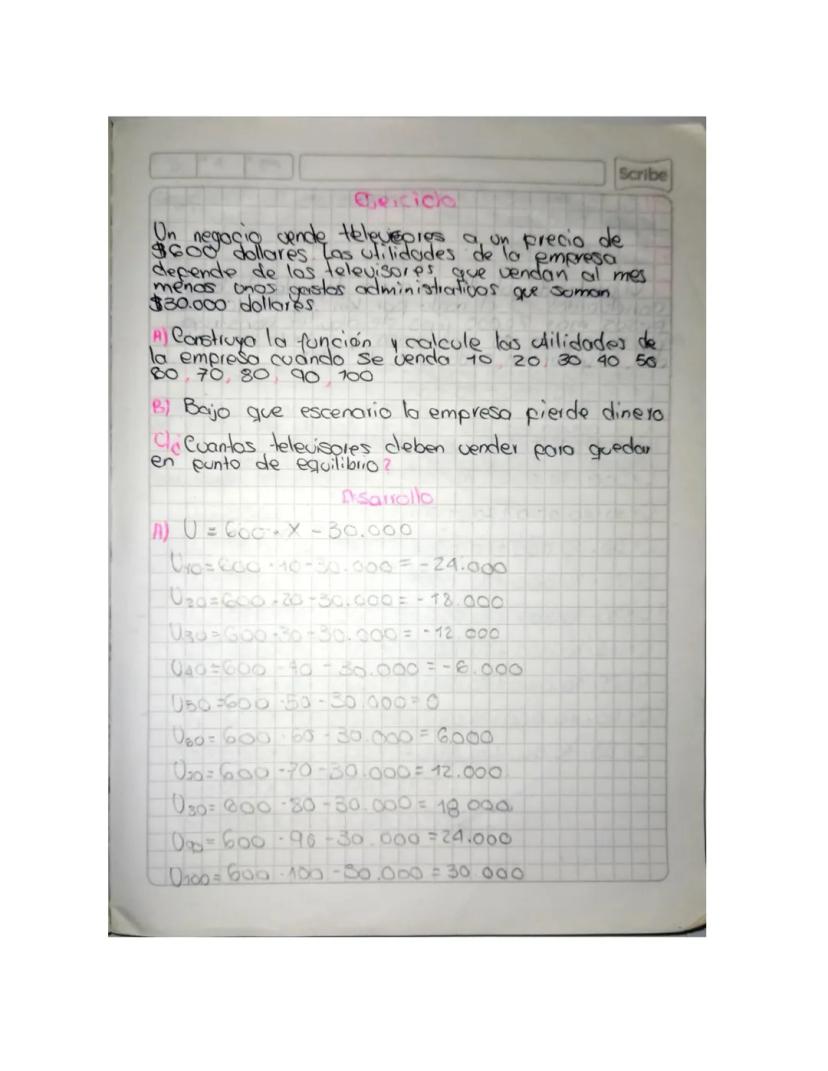 Scribe
Ejercicio
Un negocio vende televisores a un precio de
$600 dollares. Las utilidades de la empresa
depende de los televisores, que vendan al mes
menos unos gastos administrativos que suman
$30.000 dollares
A) Construya la función y calcule las utilidades de
la empresa cuando se venda 10, 20, 30, 40, 50,
60, 70, 80, 90, 100
B) Bajo que escenario la empresa pierde dinero
C) ¿Cuantos televisores deben vender para quedar
en punto de equilibrio?
Dsarrollo
A) U = 600 · X - 30.000
U10 = 600 · 10 - 30.000 = - 24.000
U20 = 600 · 20 - 30.000 = - 18.000
U30 = 600 · 30 - 30.000 = - 12.000
U40 = 600 · 40 - 30.000 = - 6.000
U50 = 600 · 50 - 30.000 = 0
U60 = 600 · 60 - 30.000 = 6000
U70 = 600 · 70 - 30.000 = 12.000
U80 = 600 · 80 - 30.000 = 18.000
U90 = 600 · 90 - 30.000 = 24.000
U100 = 600 · 100 - 30.000 = 30.000